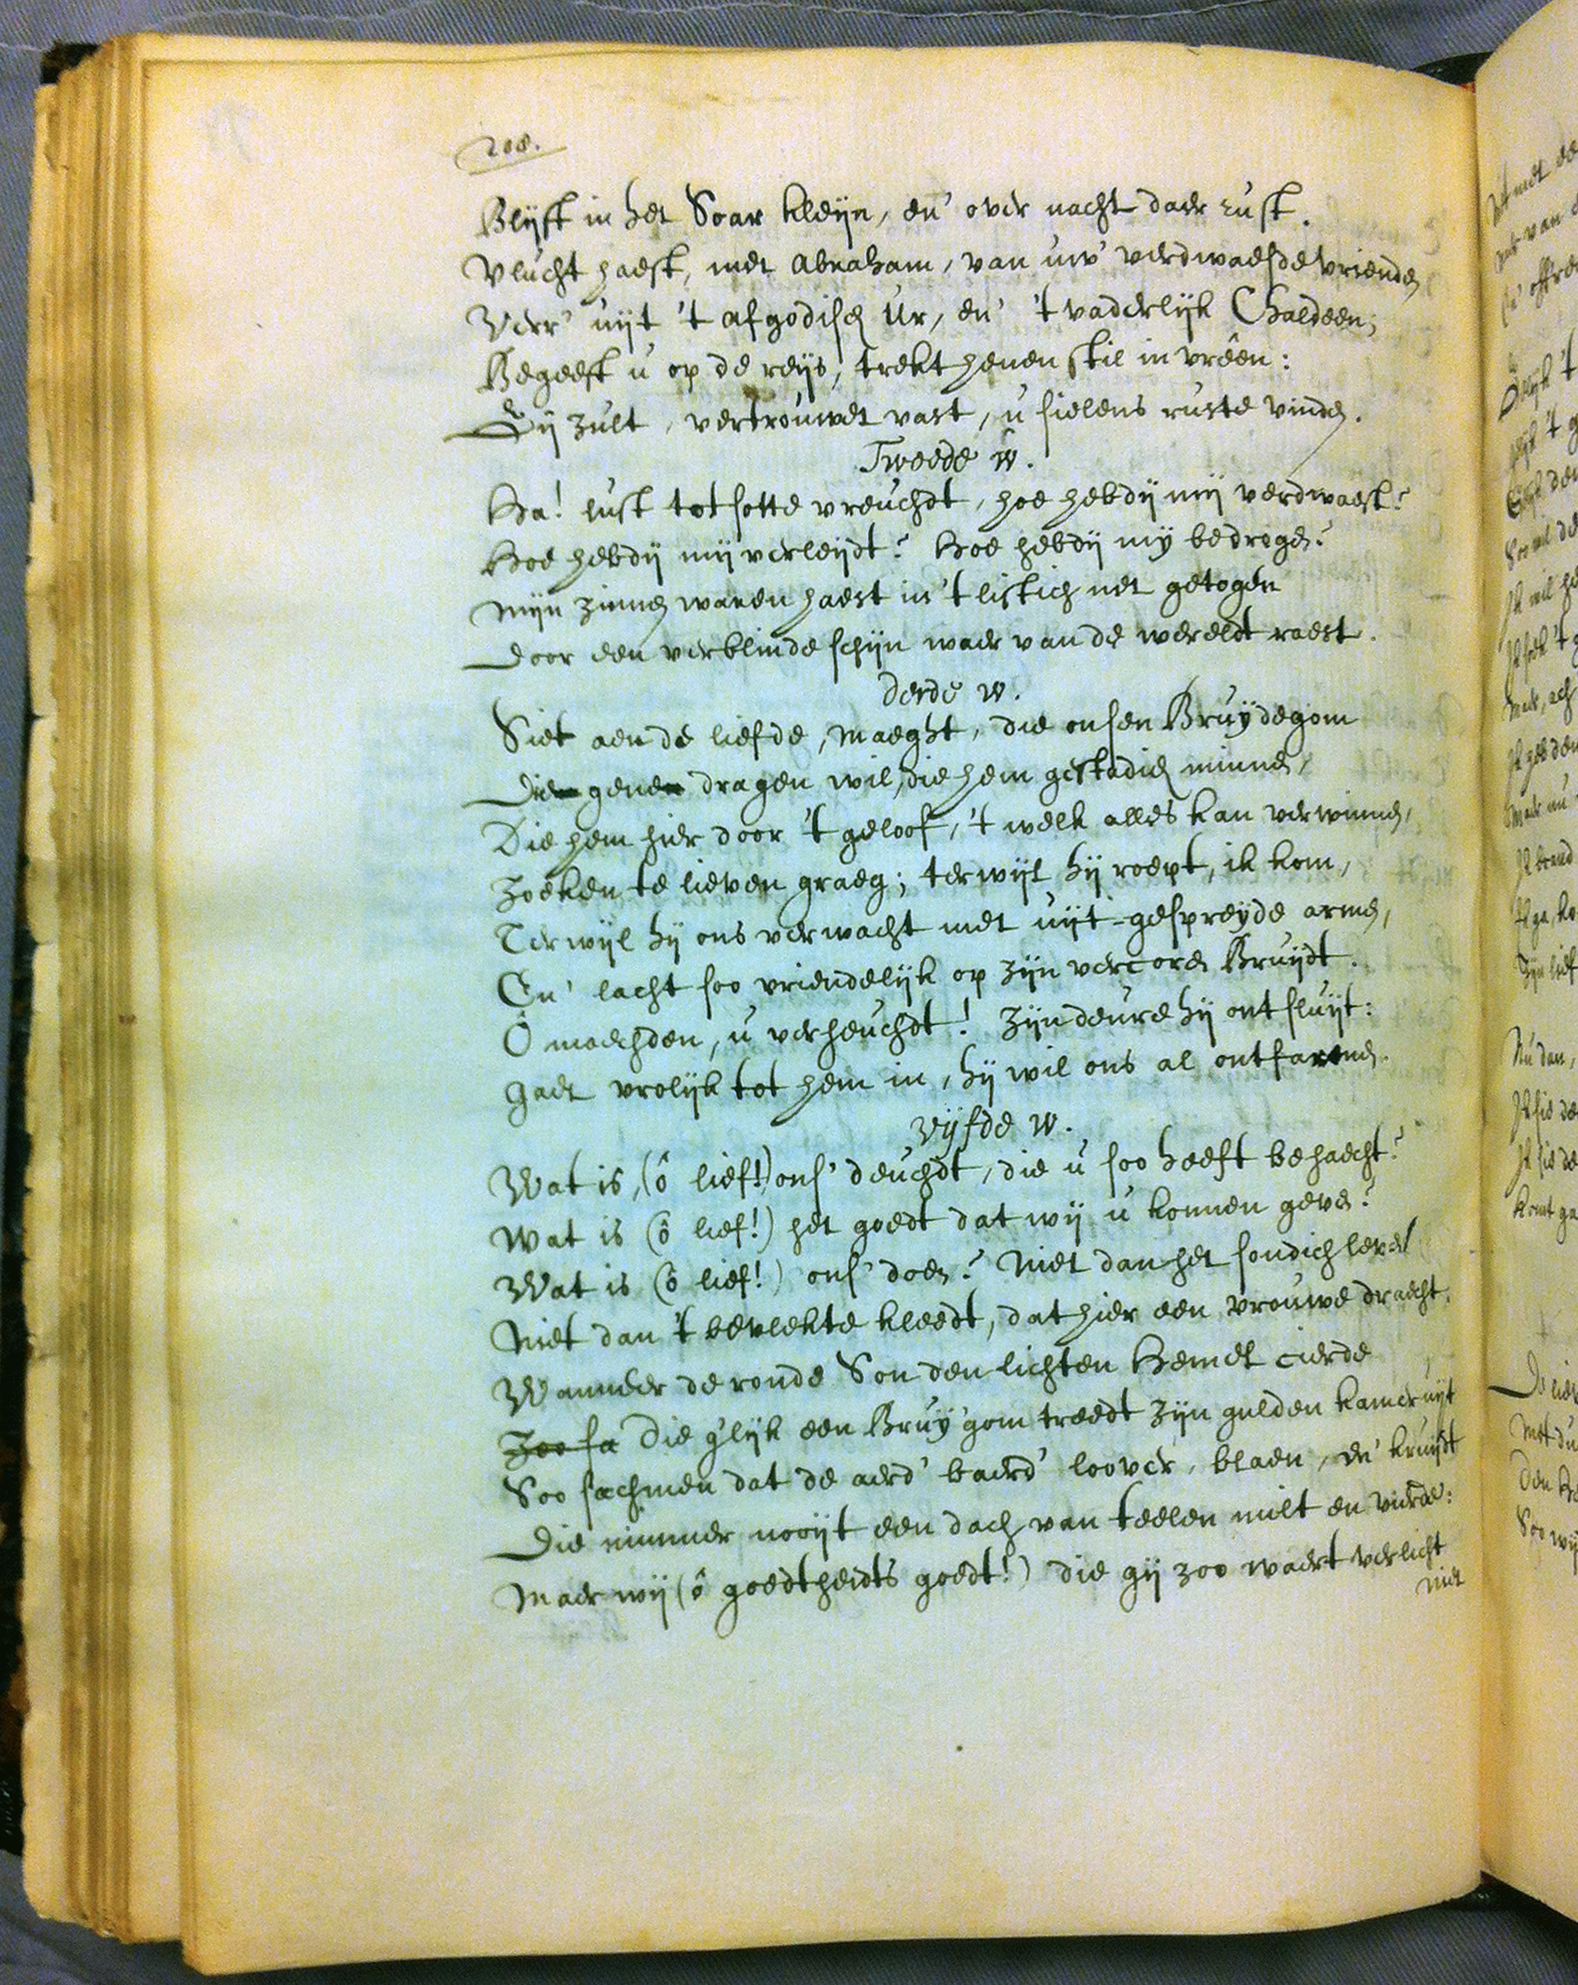 208.
Blijft in het Soar kleijn, en' over nacht daer rust.
Vlucht haest, met Abraham, van uw' verdwaesde vrienden
Verr' uijt 't afgodisch Ur, en' 't vaderlijk Chaldeen;
Begeeft u op de reijs, trekt henen stil in vréen:
Gij zult, vertrouwet vast, u sielens ruste vinden.
Tweede w.
Ha! lust tot sotte vreuchdt, hoe hebdij mij verdwaest?
Hoe hebdij mij verleijdt? Hoe hebdij mij bedrogen?
Mijn zinnen waren haest in 't listich net getogen
Door een verblinde schijn waer van de wereldt raest.
derde w.
Siet aen de liefde, Maeght, die onsen Bruijdegom
Die gene dragen wil, die hem gestadich minnen,
Die hem hier door 't geloof, 't welk alles kan verwinnen,
Zoeken te lieven graeg; terwijl hij roept, ik kom,
Terwijl hij ons verwacht met uijt-gespreijde armen,
En' lacht soo vriendelijk op zijn vercoren Bruijdt.
Ô maechden, u verheuchdt! Zijn deure hij ontsluijt:
Gaet vrolijk tot hem in, hij wil ons al ontfarmen.
vijfde w.
Wat is, (ô lief!) ons' deuchdt, die u soo heeft behaecht?
Wat is (ô lief!) het goedt dat wij u konnen geven?
Wat is (ô lief!) ons' doen? Niet dan het sondich leven
Niet dan 't bevlekte kleedt, dat hier een vrouwe draecht.
Wanneer de ronde Son den lichten Hemel cierde
Zoo sa Die g'lijk een Bruij'gom treedt zijn gulden kamer uijt
Soo sachmen dat de aerd' baerd' loover, blaen, en' kruijdt
Die nimmer nooijt een dach van teelen milt en vierde:
Maer wij (ô goedtheidts goedt!) die gij zoo waert verlicht
niet